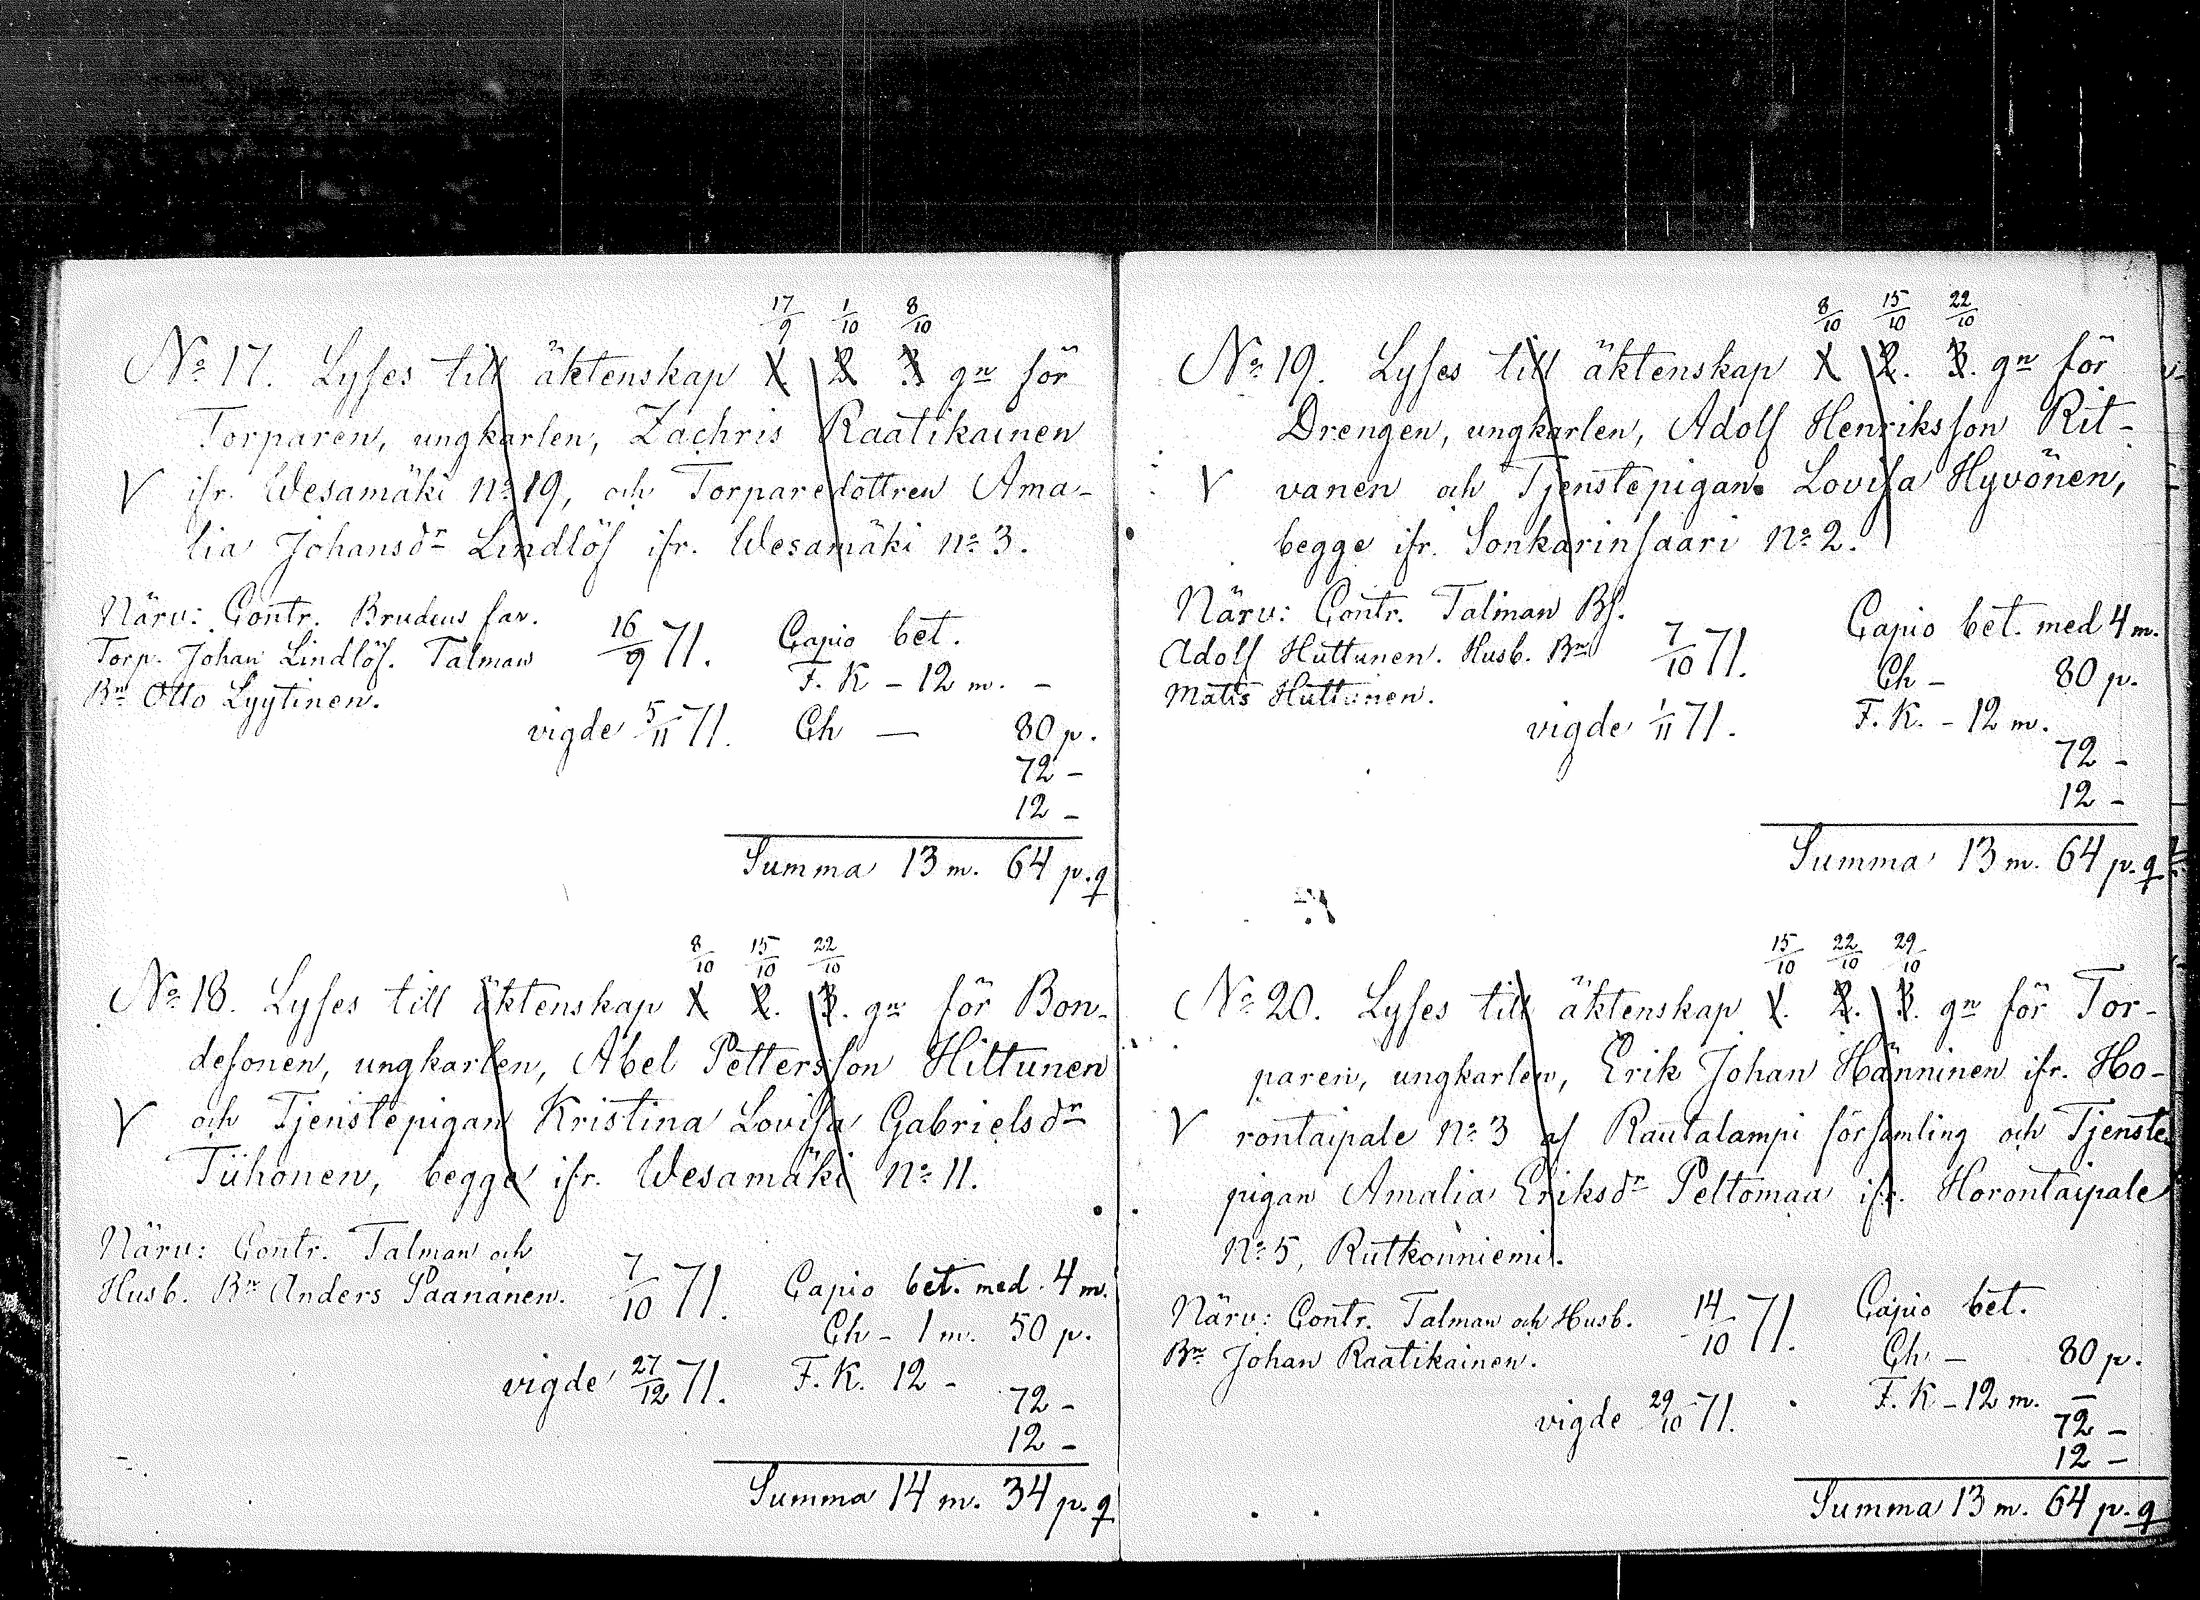 17/9 1/10 8/10
No 17. Lyses till äktenskap 1. 2. 3. gn för
Torparen, ungkarlen, Zachris Raatikainen
V ifr. Wesamäki No 19, och Torparedottren Ama-
lia Johansdr Lindlöf ifr. Wesamäki No 3.
Närv: Contr. Brudens far.
Torp. Johan Lindlöf. Talman
Bn Otto Lyytinen.
16/9 71.
Capio bet.
F. K – 12 m. –
vigde 5/11 71. Ch — 80 p.
72 –
12 –
Summa 13 m. 64 p.
8/10 15/10 22/10
No 18. Lyses till äktenskap 1 2. 3. gn för Bon-
desonen, ungkarlen, Abel Pettersson Hiltunen
V och Tjenstepigan Kristina Lovisa Gabrielsdr
Tiihonen, begge ifr. Wesamäki No 11.
Närv: Contr. Talman och
Husb. Bn Anders Paananen.
7/10 71.
Capio bet. med 4 m.
Ch – 1 m. 50 p.
vigde 27/12 71. F. K. 12 –
72 –
12 –
Summa 14 m. 34 p.
8/10 15/10 22/10
No 19. Lyses till äktenskap 1 2. 3. gn för
Drengen, ungkarlen, Adolf Henriksson Rit-
V vanen och Tjenstepigan Lovisa Hyvönen,
begge ifr. Sonkarinsaari No 2.
Närv: Contr. Talman Bf.
Adolf Huttunen. Husb. Bn
Matts Huttunen.
7/10 71.
Capio bet. med 4 m.
Ch – 80 p.
vigde 1/11 71. F. K. – 12 m.
72 –
12 –
Summa 13 m. 64 p.
15/10 22/10 29/10
No 20. Lyses till äktenskap 1. 2. 3. gn för Tor-
paren, ungkarlen, Erik Johan Hänninen ifr. Ho-
V rontaipale No 3 af Rautalampi församling och Tjenste
pigan Amalia Eriksdr Peltomaa ifr. Horontaipale
No 5, Rutkonniemi.
Närv: Contr. Talman och Husb.
Bn Johan Raatikainen.
14/10 71.
Capio bet.
Ch – 80 p.
F. K – 12 m. –
vigde 29/10 71.
72 –
12 –
Summa 13 m. 64 p.